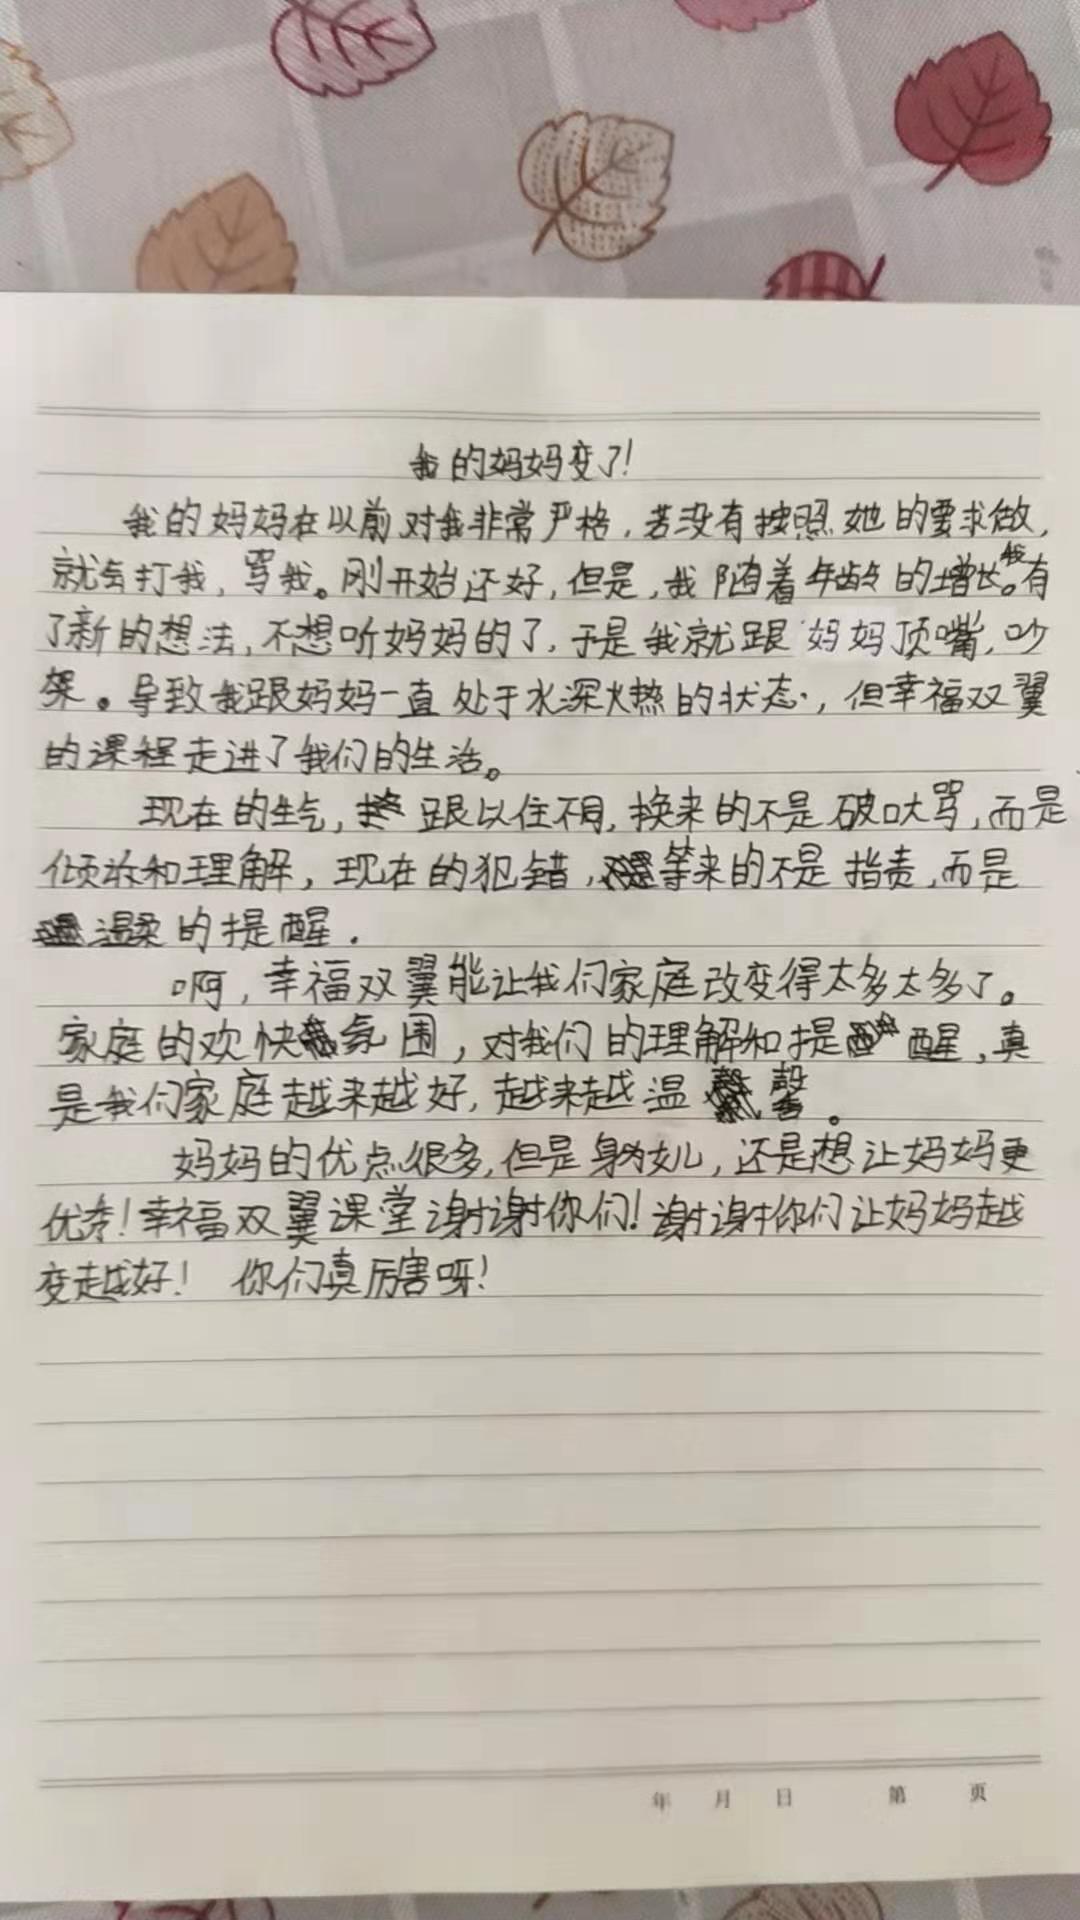 我的妈妈变了!
我的妈妈在以前对我非常严格，若没有按照她的要求做，
就会打我，骂我。刚开始还好，但是，我随着年龄的增长。我有
了新的想法，不想听妈妈的了，于是我就跟妈妈顶嘴，吵
架。导致我跟妈妈一直处于水深火热的状态，但幸福双翼
的课程走进了我们的生活。
现在的生气，跟以住不同，换来的不是破口大骂，而是
倾诉和理解，现在的犯错，等来的不是指责，而是
温柔的提醒.
啊，幸福双翼能让我们家庭改变得太多太多了。
家庭的欢快氛围，对我们的理解和提醒，真
是我们家庭越来越好，越来越温馨。
妈妈的优点很多，但是身为女儿，还是想让妈妈更
优秀!幸福双翼课堂谢谢你们!谢谢你们让妈妈越
变越好! 你们真厉害呀!
年 月 日 第 页